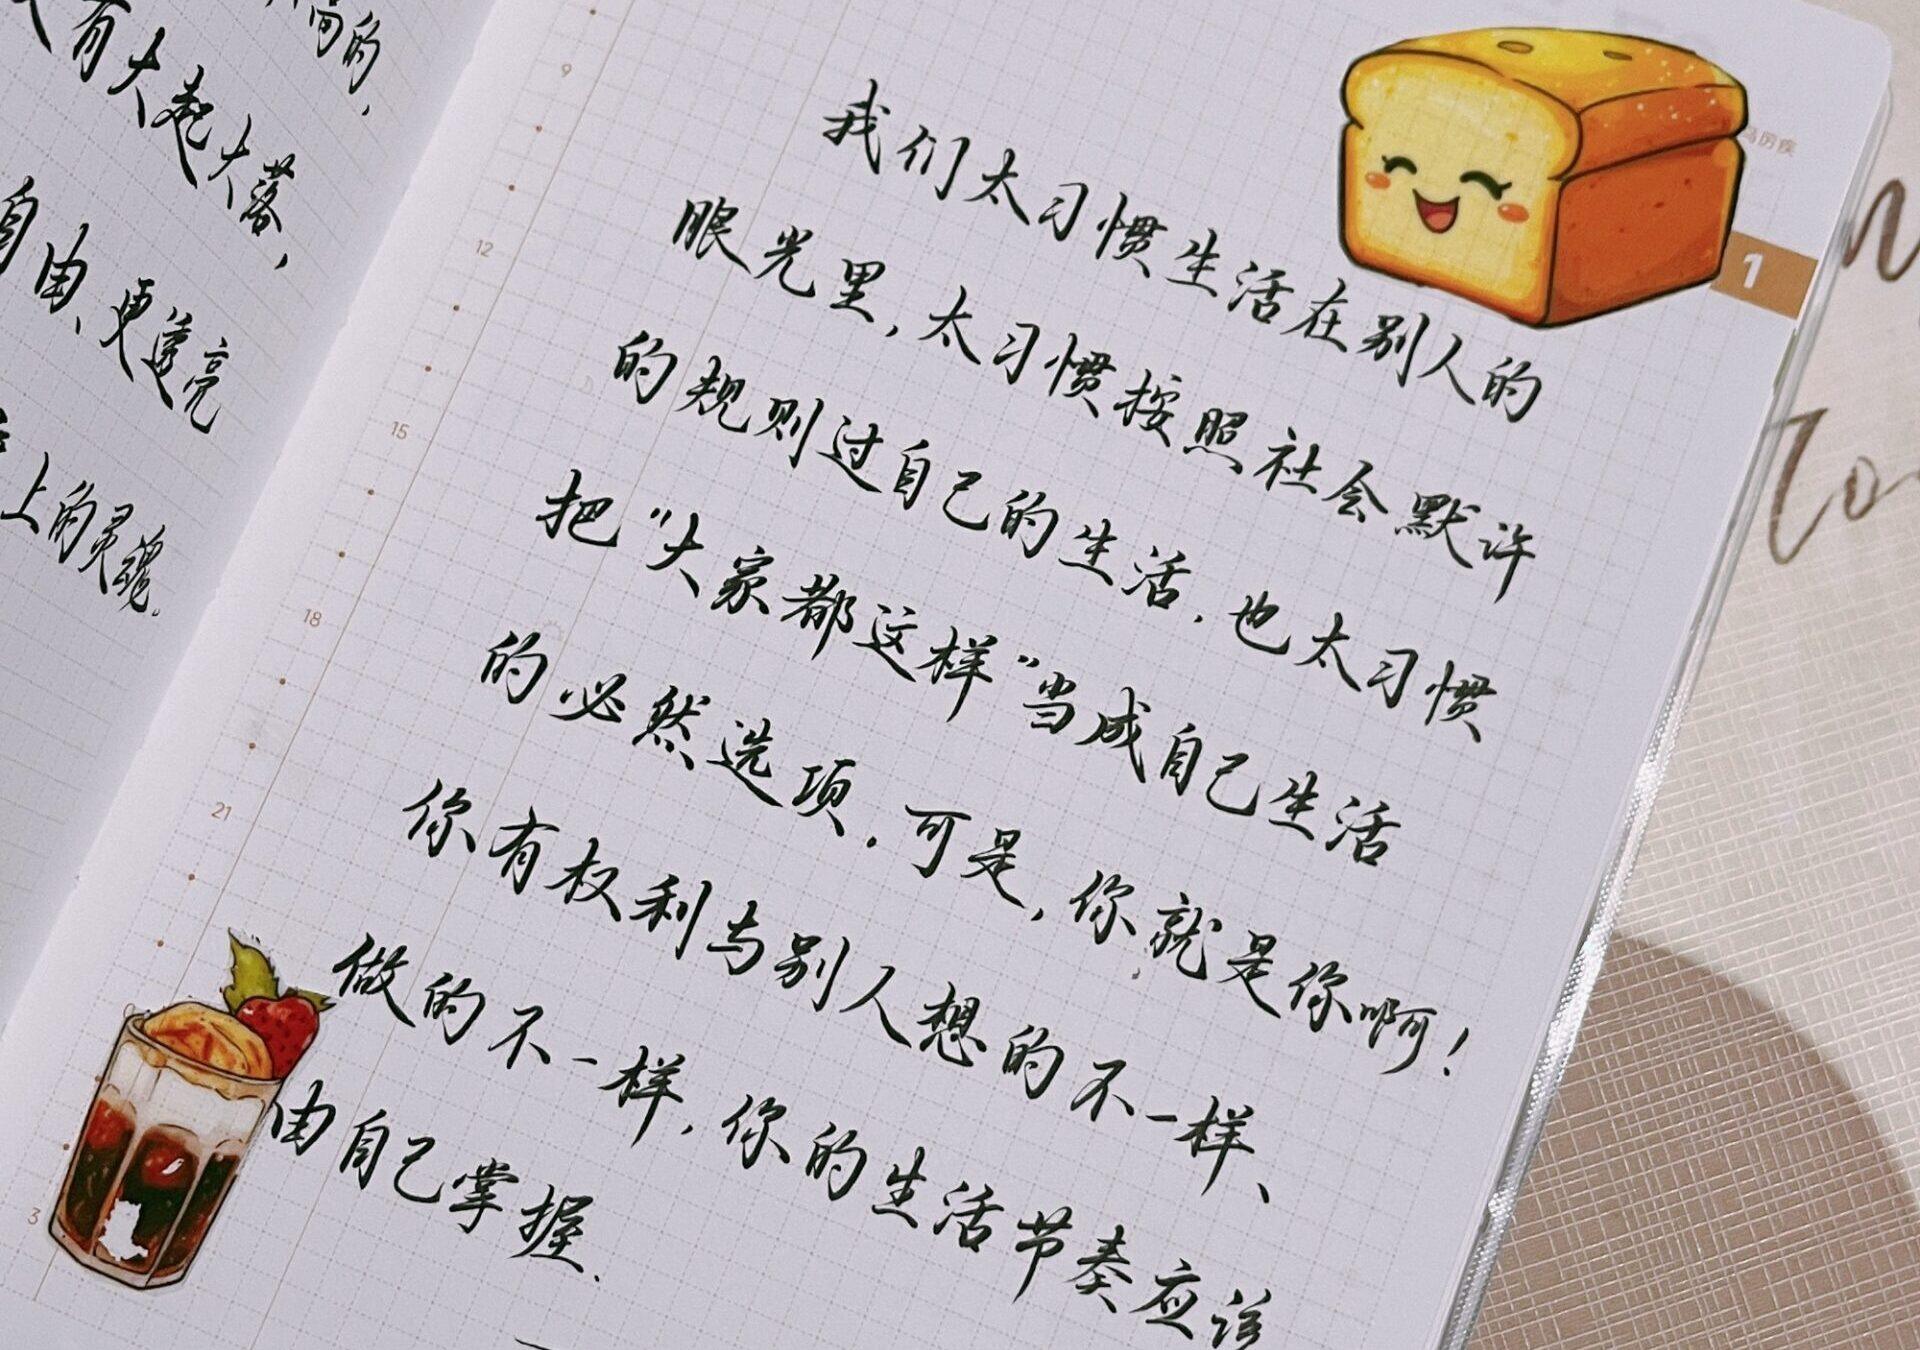 有大起大落,
自由、更遼亮
上的灵魂.
我们太习惯生活在别人的
眼光里,太习惯按照社会默许
的规则过自己的生活.也太习惯
把"大家都这样"当成自己生活
的必然选项.可是,你就是你啊!
你有权利与别人想的不一样、
做的不一样,你的生活节奏应该
由自己掌握.
9
12
15
18
21
3
1